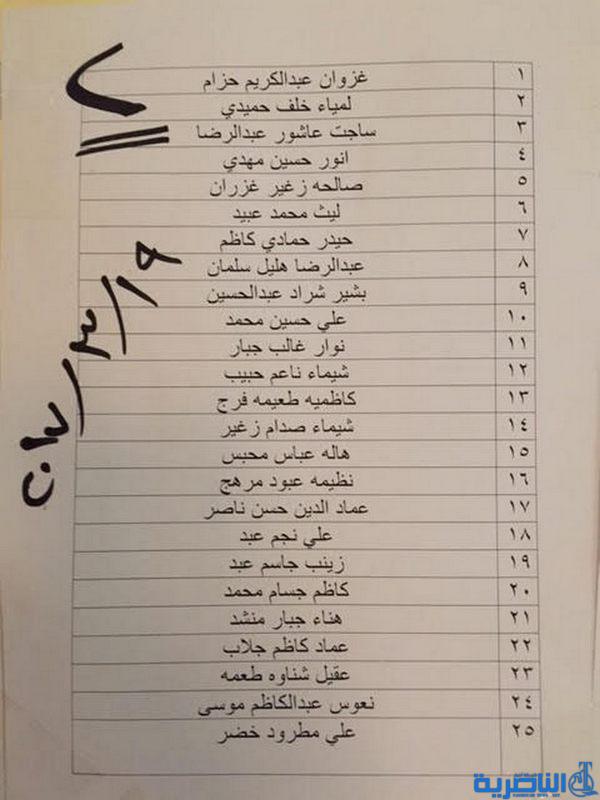 ١ غزوان عبدالكريم حزام
٢ لمياء خلف حميدي
٣ ساجت عاشور عبدالرضا
٤ انور حسين مهدي
٥ صالحه زغير غزران
٦ ليث محمد عبيد
٧ حيدر حمادي كاظم
٨ عبدالرضا هليل سلمان
٩ بشير شراد عبدالحسين
١٠ علي حسين محمد
١١ نوار غالب جبار
١٢ شيماء ناعم حبيب
١٣ كاظميه طعيمه فرج
١٤ شيماء صدام زغير
١٥ هاله عباس محبس
١٦ نظيمه عبود مرهج
١٧ عماد الدين حسن ناصر
١٨ علي نجم عبد
١٩ زينب جاسم عبد
٢٠ كاظم جسام محمد
٢١ هناء جبار منشد
٢٢ عماد كاظم جلاب
٢٣ عقيل شناوه طعمه
٢٤ نعوس عبدالكاظم موسى
٢٥ علي مطرود خضر
٢
الناصرية